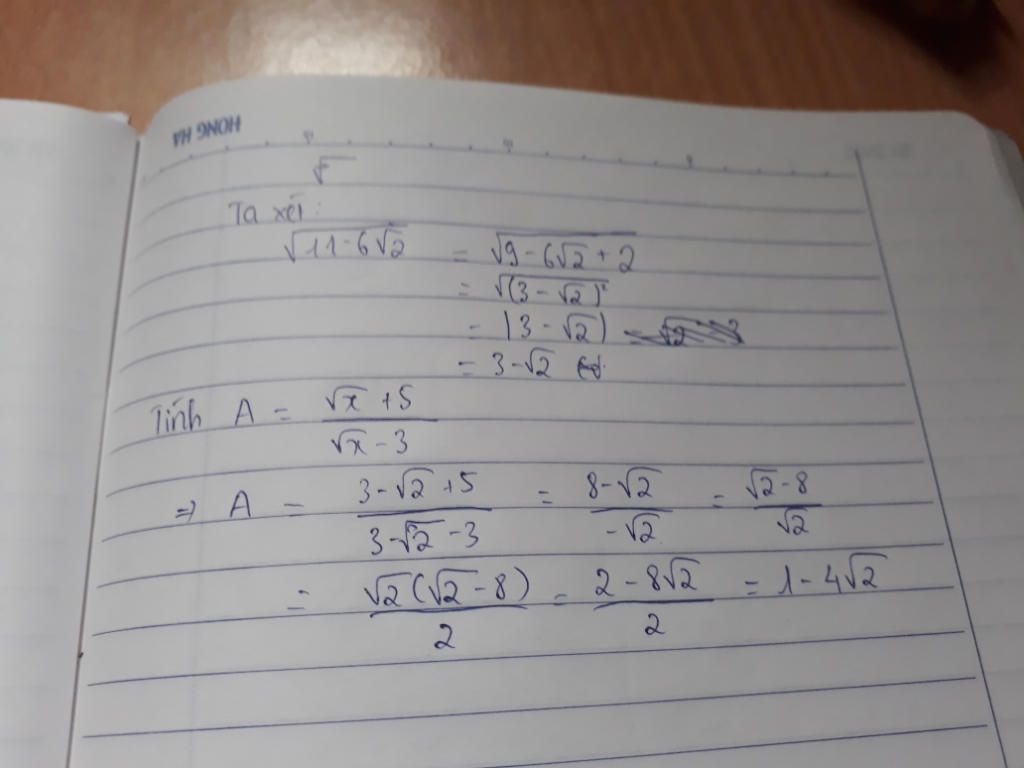 HONG HA
√
Ta xét:
√(11-6√2) = √(9-6√2+2)
= √((3-√2)²)
= |3-√2|
= 3-√2
Tính A = (√x+5)/(√x-3)
⇒ A = (3-√2+5)/(3-√2-3) = (8-√2)/(-√2) = (√2-8)/√2
= (√2(√2-8))/2 = (2-8√2)/2 = 1-4√2